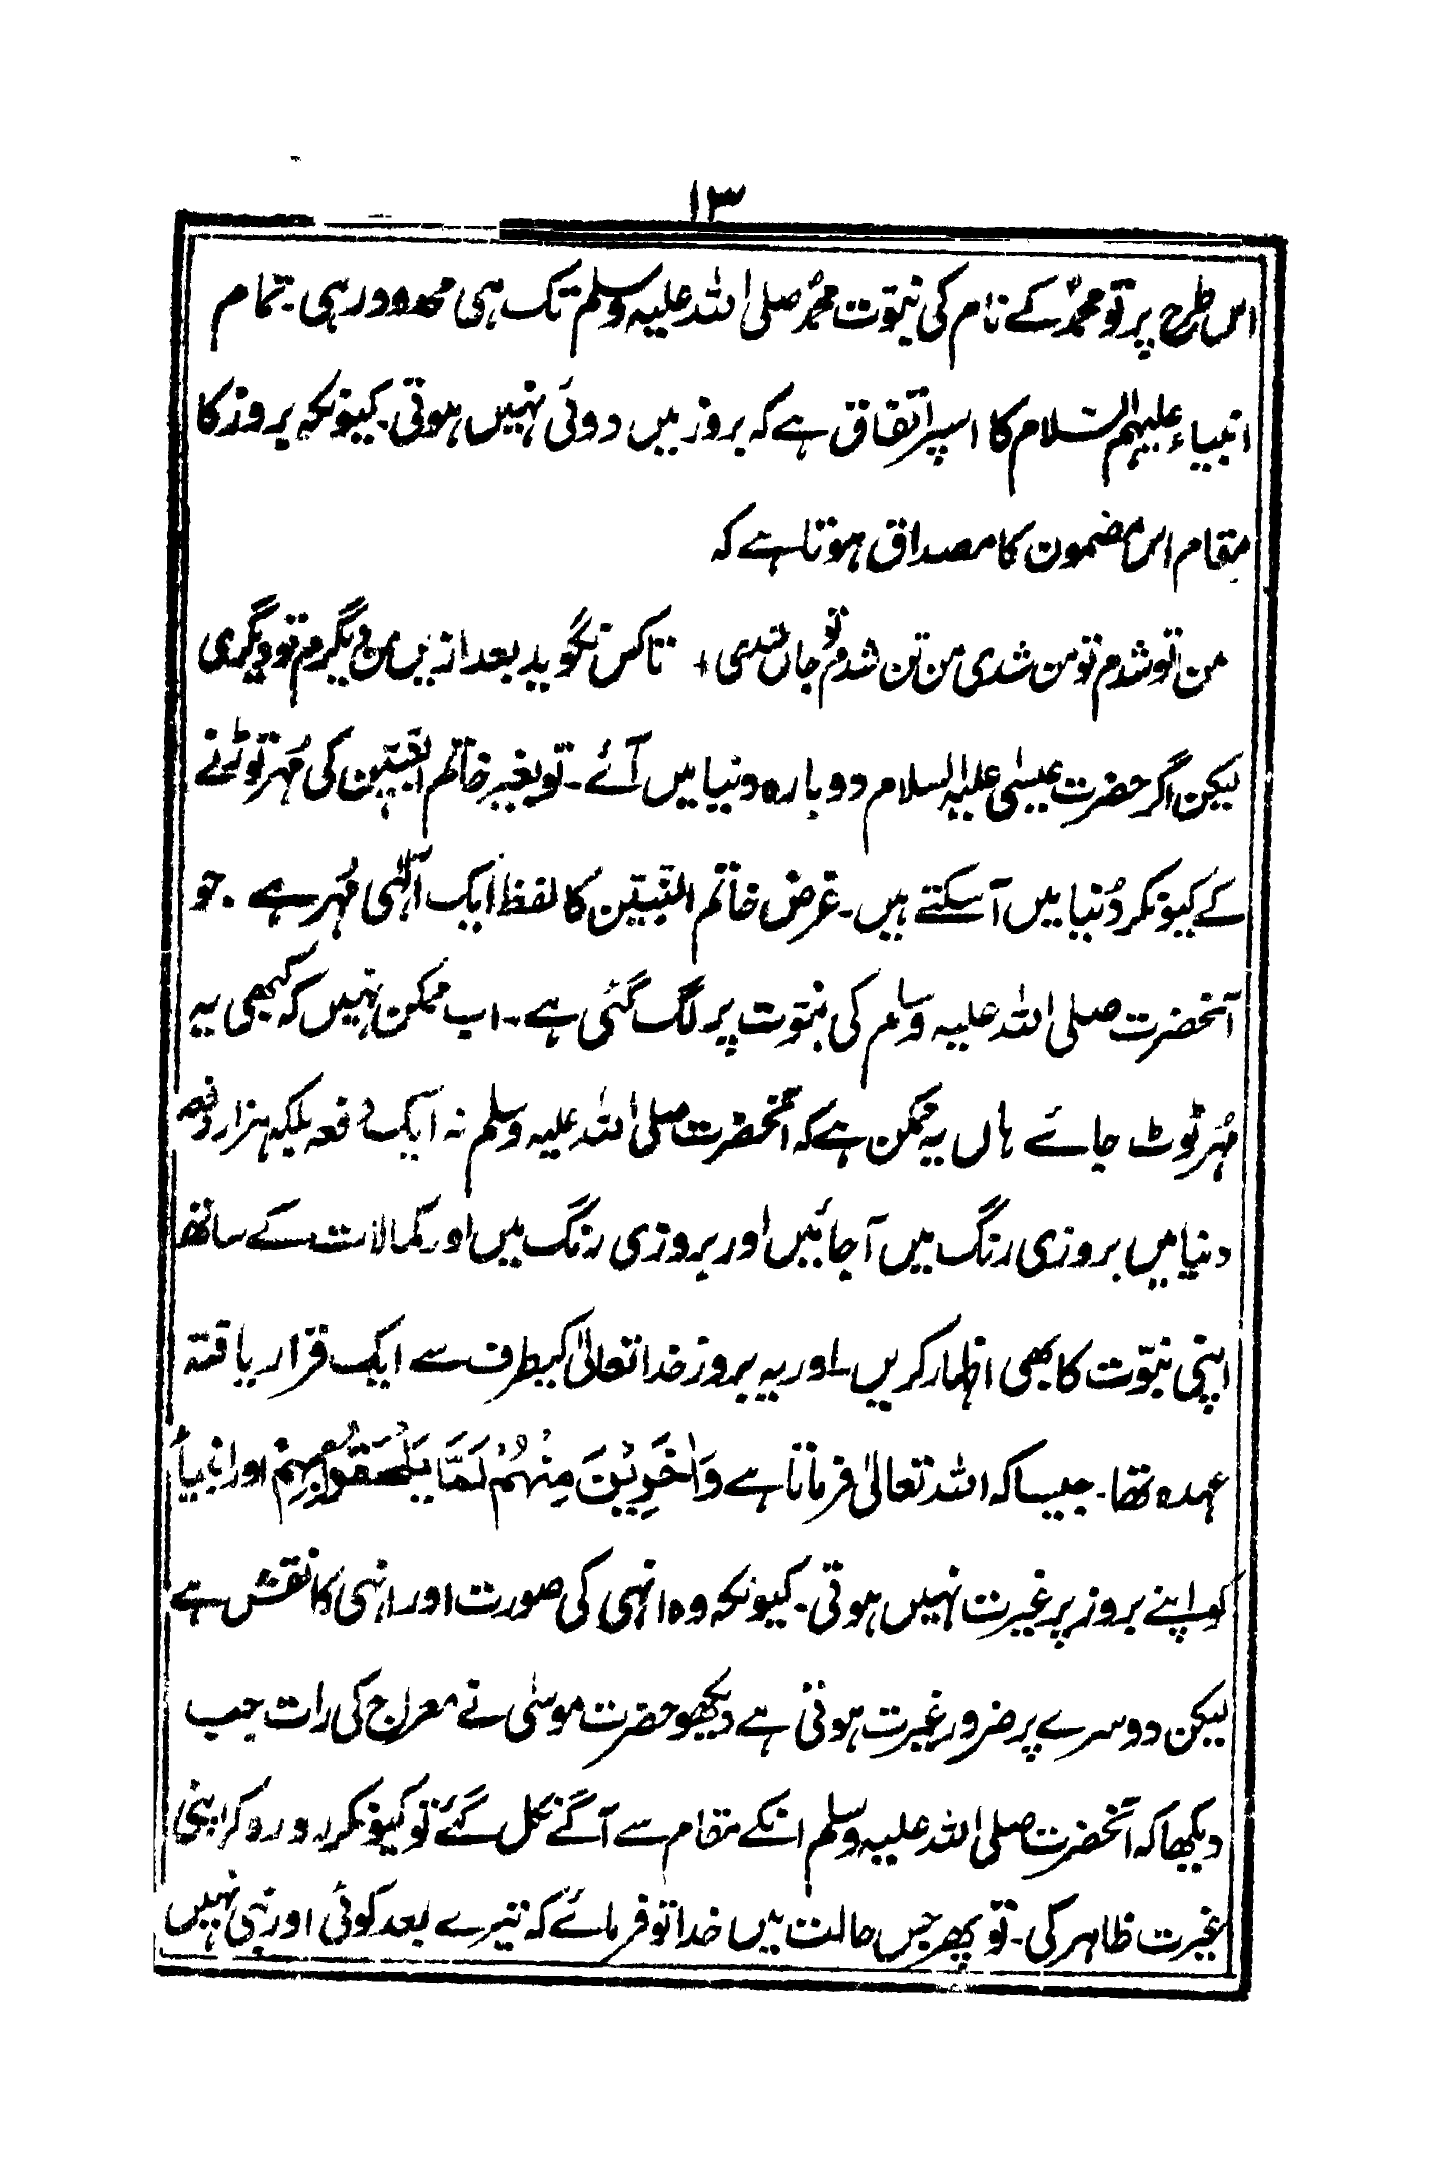 ۱۳
اس طرح پر تو محمدؐ کے نام کی نبوّت محمدؐ صلی اللہ علیہ وسلم تک ہی محدود رہی۔ تمام
انبیاء علیہم السلام کا اسپر اتفاق ہے کہ بروز میں دوئی نہیں ہوتی۔ کیونکہ بروز کا
مقام اس مضمون کا مصداق ہوتا ہے کہ
من تو شدم تو من شدی من تن شدم تو جاں شدی + تا کس نگوید بعد ازیں من دیگرم تو دیگری
لیکن اگر حضرت عیسیٰ علیہ السلام دوبارہ دنیا میں آئے۔ تو بغیر خاتم النبیّین کی مُہر توڑنے
کے کیونکر دُنیا میں آسکتے ہیں۔ غرض خاتم النبیّین کا لفظ ایک آلٰہی مُہر ہے۔ جو
آنحضرت صلی اللہ علیہ وسلم کی نبوّت پر لگ گئی ہے۔ اب ممکن نہیں کہ کبھی یہ
مُہر ٹوٹ جائے ہاں یہ ممکن ہے کہ آنحضرت صلی اللہ علیہ وسلم نہ ایک دفعہ بلکہ ہزار دفعہ
دنیا میں بروزی رنگ میں آجائیں اور بروزی رنگ میں اور کمالات کے ساتھ
اپنی نبوّت کا بھی اظہار کریں۔ اور یہ بروز خدا تعالیٰ کیطرف سے ایک قرار یافتہ
عہدہ تھا۔ جیسا کہ اللہ تعالیٰ فرماتا ہے وَاٰخَرِیْنَ مِنْہُمْ لَمَّا یَلْحَقُوْا بِہِمْ اور انبیاء
کو اپنے بروز پر غیرت نہیں ہوتی۔ کیونکہ وہ انہی کی صورت اور انہی کا نقش ہے
لیکن دوسرے پر ضرور غیرت ہوتی ہے دیکھو حضرت موسٰی نے معراج کی رات جب
دیکھا کہ آنحضرت صلی اللہ علیہ وسلم انکے مقام سے آگے نکل گئے تو کیونکر رو رو کر اپنی
غیرت ظاہر کی۔ تو پھر جس حالت میں خدا تو فرمائے کہ تیرے بعد کوئی اور نبی نہیں